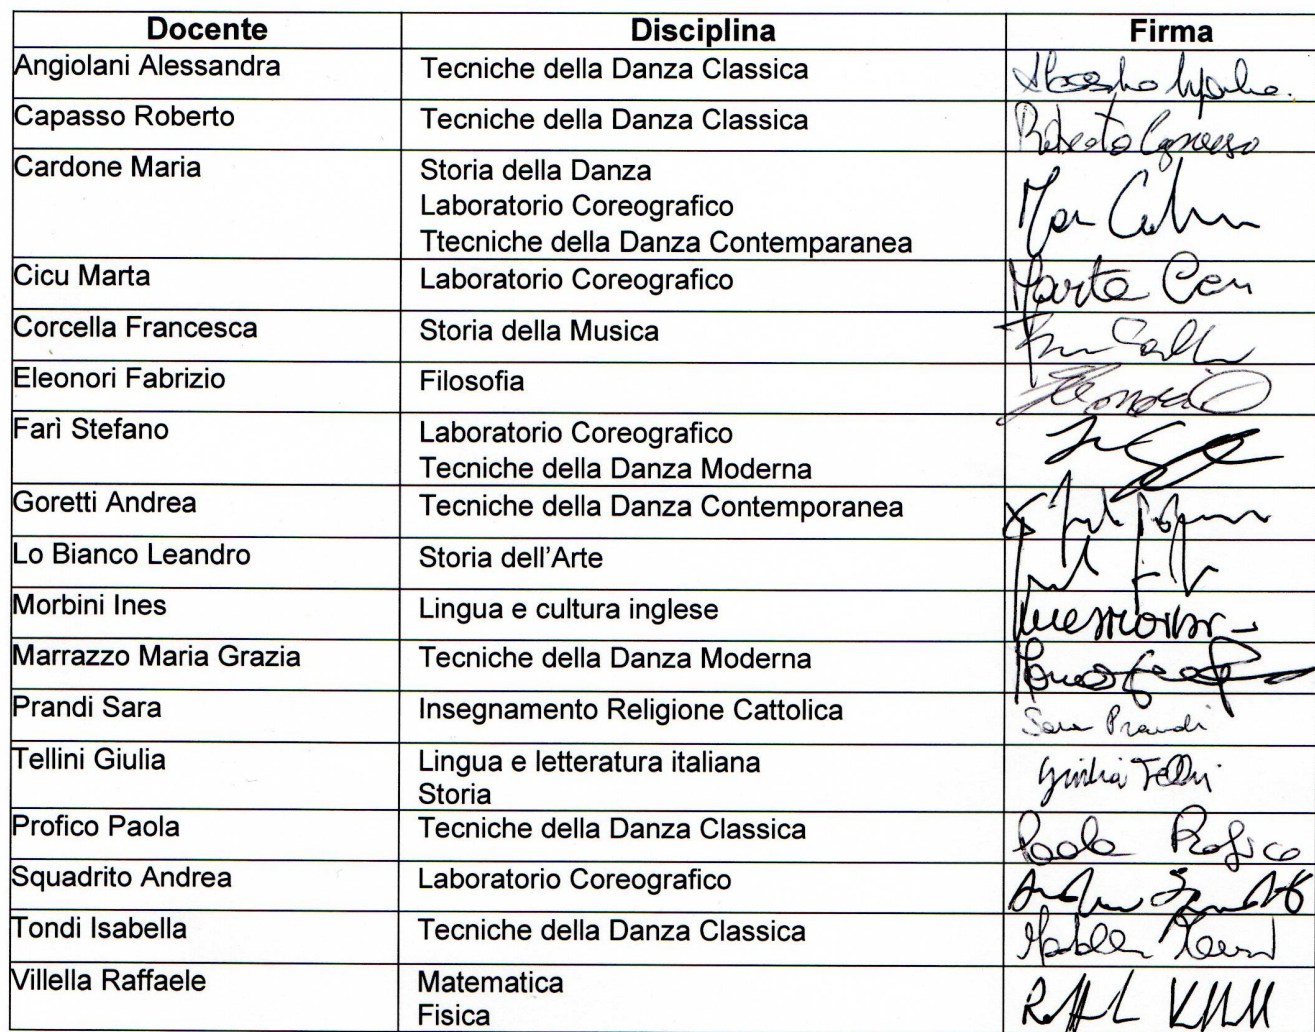 Docente Disciplina Firma
Angiolani Alessandra Tecniche della Danza Classica
Capasso Roberto Tecniche della Danza Classica Roberto Capasso
Cardone Maria Storia della Danza
Laboratorio Coreografico
Ttecniche della Danza Contemparanea
Cicu Marta Laboratorio Coreografico Marta
Corcella Francesca Storia della Musica
Eleonori Fabrizio Filosofia
Farì Stefano Laboratorio Coreografico
Tecniche della Danza Moderna
Goretti Andrea Tecniche della Danza Contemporanea
Lo Bianco Leandro Storia dell'Arte
Morbini Ines Lingua e cultura inglese
Marrazzo Maria Grazia Tecniche della Danza Moderna
Prandi Sara Insegnamento Religione Cattolica Sara Prandi
Tellini Giulia Lingua e letteratura italiana Giulia Tellini
Storia
Profico Paola Tecniche della Danza Classica Paola Profico
Squadrito Andrea Laboratorio Coreografico
Tondi Isabella Tecniche della Danza Classica
Villella Raffaele Matematica
Fisica